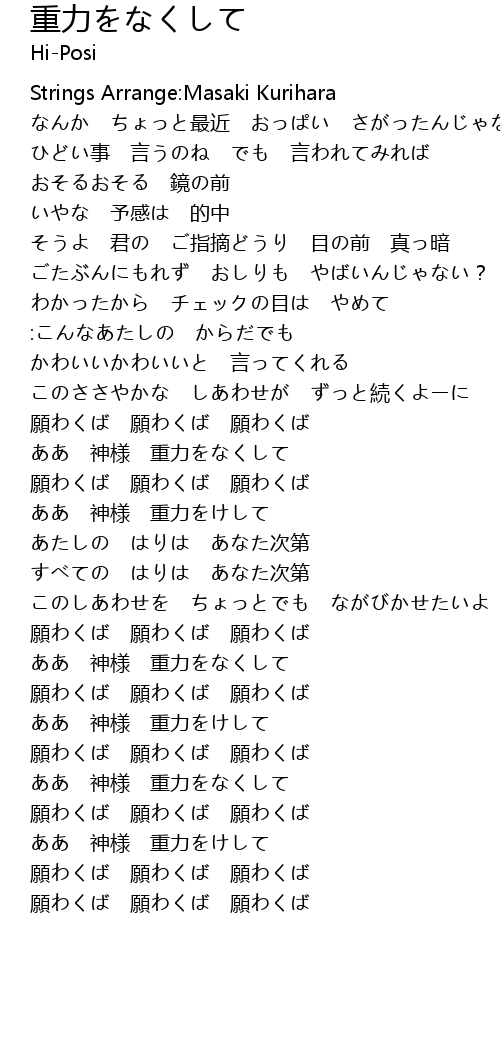 重力をなくして
Hi-Posi
Strings Arrange:Masaki Kurihara
なんか　ちょっと最近　おっぱい　さがったんじゃな
ひどい事　言うのね　でも　言われてみれば
おそるおそる　鏡の前
いやな　予感は　的中
そうよ　君の　ご指摘どうり　目の前　真っ暗
ごたぶんにもれず　おしりも　やばいんじゃない？
わかったから　チェックの目は　やめて
:こんなあたしの　からだでも
かわいいかわいいと　言ってくれる
このささやかな　しあわせが　ずっと続くよーに
願わくば　願わくば　願わくば
ああ　神様　重力をなくして
願わくば　願わくば　願わくば
ああ　神様　重力をけして
あたしの　はりは　あなた次第
すべての　はりは　あなた次第
このしあわせを　ちょっとでも　ながびかせたいよ
願わくば　願わくば　願わくば
ああ　神様　重力をなくして
願わくば　願わくば　願わくば
ああ　神様　重力をけして
願わくば　願わくば　願わくば
ああ　神様　重力をなくして
願わくば　願わくば　願わくば
ああ　神様　重力をけして
願わくば　願わくば　願わくば
願わくば　願わくば　願わくば